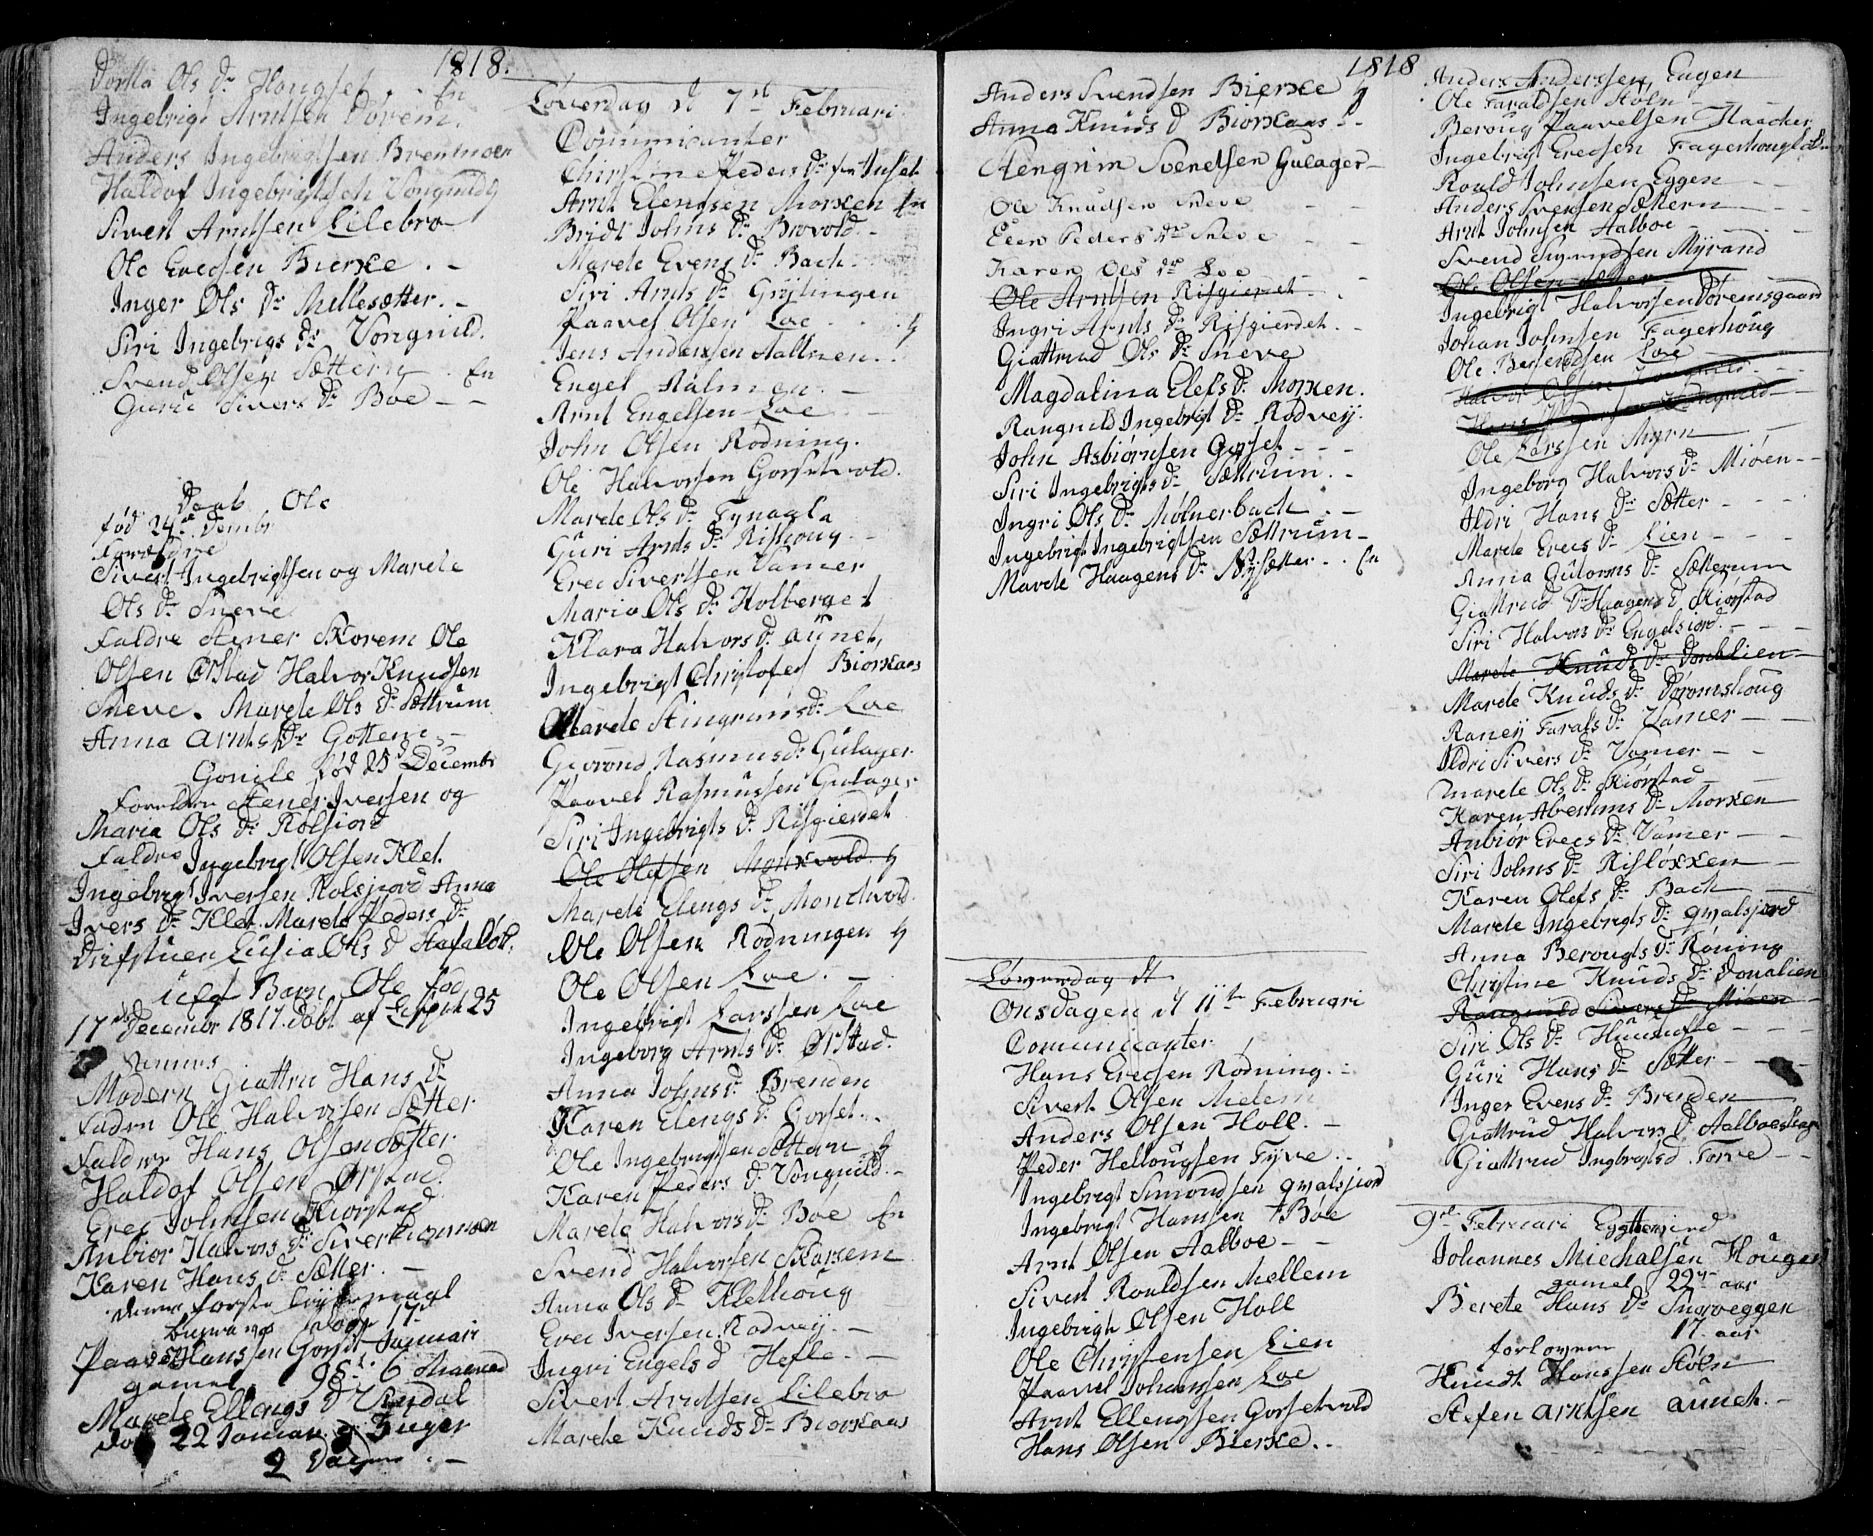 1818.
Ols Dr Hougset En
Ingebrigt Arntsen Dörem.
Anders Ingebrigtsen Brennmoen
Haldof Ingebrigtsen Vongnild
Sivert Arntsen Lilebro
Ole Erecsen Bierke . -
Inger Ols Dr Mellesætter. -
Siri Ingebrigs Dr Vongnild.
Svend Olsen Sættern . En
Guru Sivers Dr Boe - -
Daab Ole
fød 24de Dembr
Forældre
Sivert Ingebrigtsen og Marete
Ols Dr Sneve
Faddre Stener Skorem Ole
Olsen Ørstad Halvor Knudsen
Sneve. Marete Ols Dr Sættrum
Anna Arnts Dr Gottem -
Gonile fød 25d Decembr
Foreldre Stener Iversen og
Maria Ols Dr Rolsiord
Faldre Ingebrigt Olsen Klet.
Ingebrigt Iversen Rolsjord Anna
Ivers Dr Klet. Marete Peders Dr
Drifstuen Lusia Ols D
uegt Barn Ole fød
17de December 1817. Døbt af 25
Modern Giattru Hans Dr
Fadern Ole Halvorsen Sætter
Faldre Hans Olsen Sætter
Haldof Olsen Ørstad.
Erec Johnsen Kiorstad
Anbior Halvors Dr
Karen Hans Dr Sætter. -
denne første
Begravne 17d
Paavel Hanssen Gorset Januari
gamel 98 6 Maaned
Marete Ellengs D Vindal
Død 22 Januari 3 Uger
2 Dage . -
Løverdag d 7d Februari
Comunicanter
Christine Peders Dr Inset
Arnt Elengsen Morken En
Bridt Johns Dr Brovold -
Marete Evens Dr Bach.
Siri Arnts Dr Grytingen
Paavel Olsen Loe
Jens Andersen Aallmen.
Engel Aalmen. -
Arnt Engelsen Loe -
John Olsen Rodning.
Ole Halvorsen Gorsetvold.
Marete Ols Dr Tynagla
Guri Arnts Dr Rishoug -
Erec Sivertsen Vamer
Maria Ols Dr Holberget
Klara Halvors Dr aunet,
Ingebrigt Christofes Biorkaas
Marete Stingrims Dr Loe
Rasmus Dr Gulager
Paavel Rasmussen Gulager
Siri Ingebrigts Dr Risgierdet
Ole Olefsen Monkvold
Marete Elengs Dr Monchvold.
Ole Olsen Rodningen
Ole Olsen Loe. -
Ingebrigt Larssen Loe
Ingeborg Arnts Dr Ørstad.
Anna Johns Dr Brenden
Karen Elengs Dr Gorset.
Ole Ingebrigtsen Sættern
Karen Peders Dr Vongnild. -
Marete Halvors Dr Boe En
Svend Halvorsen Skorem
Anna Ols Dr Klethoug
Erec Iversen Rodvej. -
Ingri Engels D Hefle. -
Sivert Arntsen Lilebro
Marete Knuds Dr Biorkaas
1818
Anders Svendsen Bierke
Anna Knuds D Biorkaas -
Stengrim Svendsen Gulager -
Ole Knudsen Sneve -
Elen Peders Dr Sneve -
Karen Ols Dr Loe
Ole Arntsen Risgierdet -
Ingri Arnts Dr Risgierdet. -
Giattrud Ols Dr Sneve
Magdalina Elefs Dr Morken.
Rangnild Ingebrigt Dr Rodvej.
John Asbiørnsen Gorset - - -
Siri Ingebrigts Dr Sættrum. -
Ingri Ols Dr Mølnerbach . -
Ingebrigt Ingebrigtsen Sættrum -
Marete Haagens Dr Nysætter . . En
Løverdag d
Onsdagen d 11te Februari
Comunicanter.
Hans Erecsen Rodning. -
Sivert Olsen Melem
Anders Olsen Holl. -
Peder Hellougsen Fyve. -
Ingebrigt Simondsen qvalsjord
Ingebrigt Hanssen Boe
Arnt Olsen Aalboe - -
Sivert Roaldsen Mellem
Ingebrigt Olsen Holl
Ole Christensen Lien
Paavel Johanssen Loe
Arnt Ellengsen Gorsetvold
Hans Olsen Bierke. .
Anders Anderssen Engen
Ole Faraldsen Støln - -
Beroug Paavelsen Haacker
Ingebrigt Erecsen Fagerhoug
Roald Johnsen Eggen - -
Anders Svensen Sættern - -
Arnt Johnsen Aalboe - -
Svend Myrand
Ole Olsen Sætter
Ingebrigt Halvorsen Döremsgaard
Johan Johnsen Fagerhoug
Ole Berendsen Loe -
Halvor Olsen Vongnild. -
Hans Vongnild -
Ole Larssen Myrn - -
Ingeborg Halvors Dr Mioen - -
Ildri Hans Dr Sætter -
Marete Erecs Dr Lien - - -
Anna Gutorms Dr Sætterum
Giattrud Dr Haagens D Skiorstad
Siri Halvors Dr Engelsjord. - - -
Marete Knuds Dr Donhlien -
Marete Knuds Dr Döromshoug
Ranej Faralds Dr Vamer - -
Ildri Sivers Dr Vamer - -
Marete Ols Dr Skiorstad -
Karen Abermms Dr Morken
Anbior Erecs Dr Vamer - -
Siri Johns Dr Risløkken -
Karen Olefs Dr Bach -
Marete Ingebrigts Dr qvalsjord
Anna Berougs Dr Røning
Christine Knuds Dr Donalien
Rangnild Sivers Dr Mioen -
Siri Ols Dr - - -
Guri Hans Dr Sætter -
Inger Evens Dr Brenden -
Giattrud Halvors D
Giattrud Ingbrigtsd Torve - -
9de Februari
Johannes Miechalsen Hougen
gamel 22 aar
Berete Hans Dr Snoveggen
17 aar
forlovere
Knudt Hanssen Støln
Stefen Arntsen aunet. -